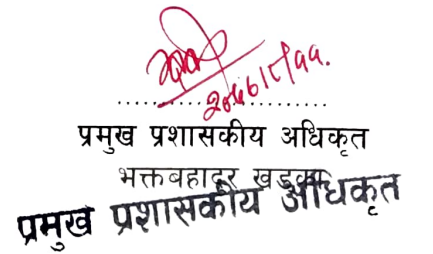 प्रमुख प्रशासकीय अधिकृत
भक्तबहादुर खड्का
प्रमुख प्रशासकीय अधिकृत